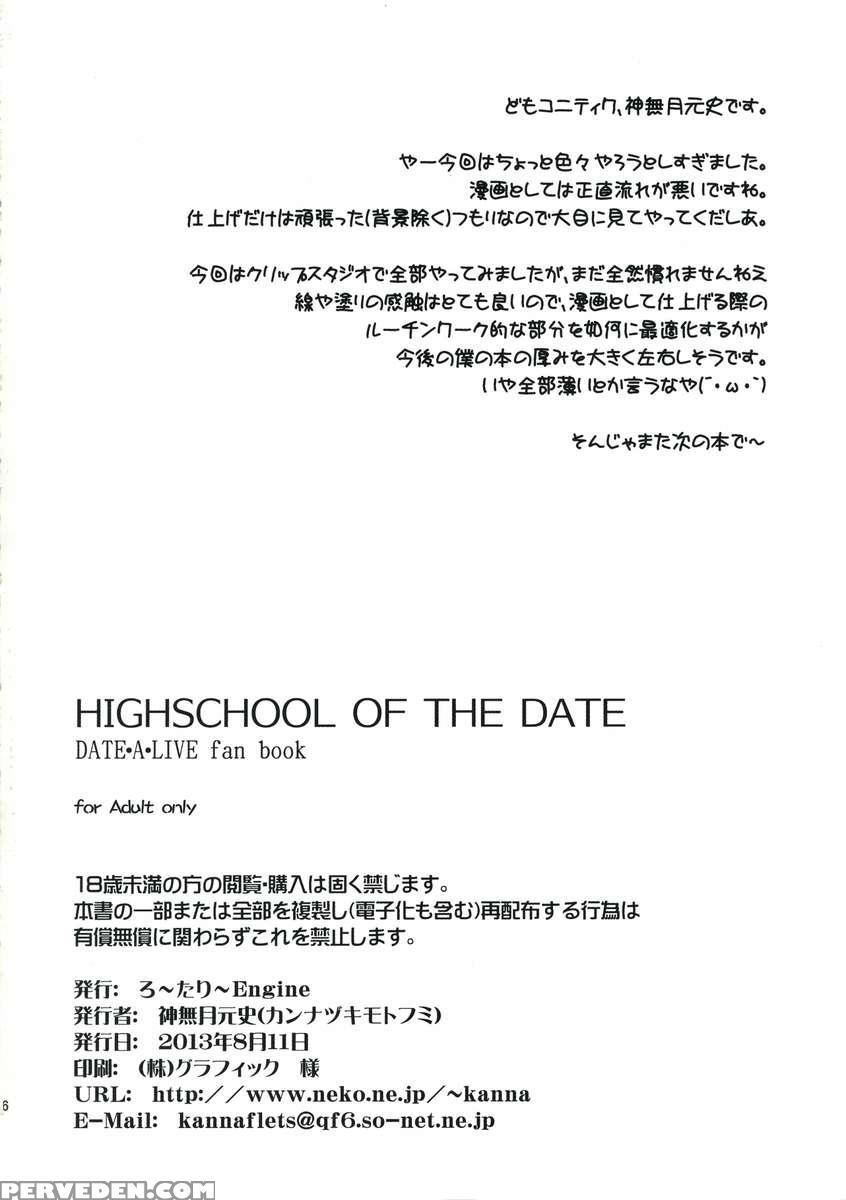 どもコニティク、神無月元史です。
やー今回はちょっと色々やろうとしすぎました。
漫画としては正直流れが悪いですね。
仕上げだけは頑張った(背景除く)つもりなので大目に見てやってくだしあ。
今回はクリップスタジオで全部やってみましたが、まだ全然慣れませんねえ
線や塗りの感触はとても良いので、漫画として仕上げる際の
ルーチンワーク的な部分を如何に最適化するかが
今後の僕の本の厚みを大きく左右しそうです。
いや全部薄いとか言うなや(´・ω・`)
そんじゃまた次の本で〜
HIGHSCHOOL OF THE DATE
DATE•A•LIVE fan book
for Adult only
18歳未満の方の閲覧・購入は固く禁じます。
本書の一部または全部を複製し(電子化も含む)再配布する行為は
有償無償に関わらずこれを禁止します。
発行: ろ〜たり〜Engine
発行者: 神無月元史(カンナヅキモトフミ)
発行日: 2013年8月11日
印刷: (株)グラフィック 様
URL: http://www.neko.ne.jp/~kanna
E-Mail: kannaflets@qf6.so-net.ne.jp
6
PERVEDEN.COM